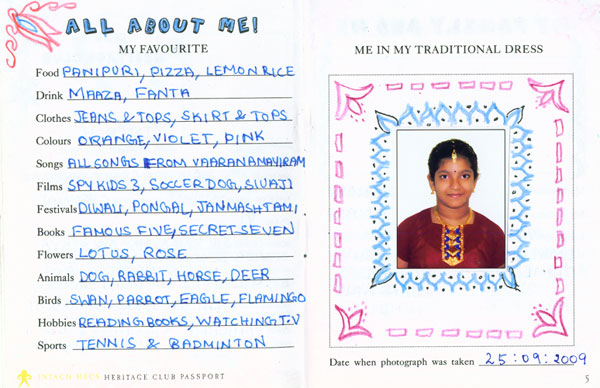 ALL ABOUT ME!
MY FAVOURITE
Food PANIPURI, PIZZA, LEMON RICE
Drink MAAZA, FANTA
Clothes JEANS & TOPS, SKIRT & TOPS
Colours ORANGE, VIOLET, PINK
Songs ALL SONGS FROM VAARANAMAVIRAM
Films SPY KIDS 3, SOCCER DOG, SIVAJI
Festivals DIWALI, PONGAL, JANMASHTAMI
Books FAMOUS FIVE, SECRET SEVEN
Flowers LOTUS, ROSE
Animals DOG, RABBIT, HORSE, DEER
Birds SWAN, PARROT, EAGLE, FLAMINGO
Hobbies READING BOOKS, WATCHING T.V
Sports TENNIS & BADMINTON
HERITAGE CLUB PASSPORT
ME IN MY TRADITIONAL DRESS
Date when photograph was taken 25:09:2009
5